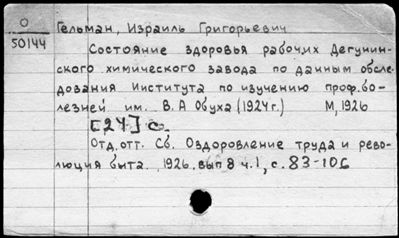 О
50144
Гельман, Израиль Григорьевич
Состояние здоровья рабочих Дегунин-
ского химического завода по данным обсле-
дования Института по изучению проф.бо-
лезней им. В.А Обуха (1924г.) М, 1926
[24] с.
Отд. отт. Сб. Оздоровление труда и рево-
люция быта. 1926, вып 8 ч.1, с. 83-106